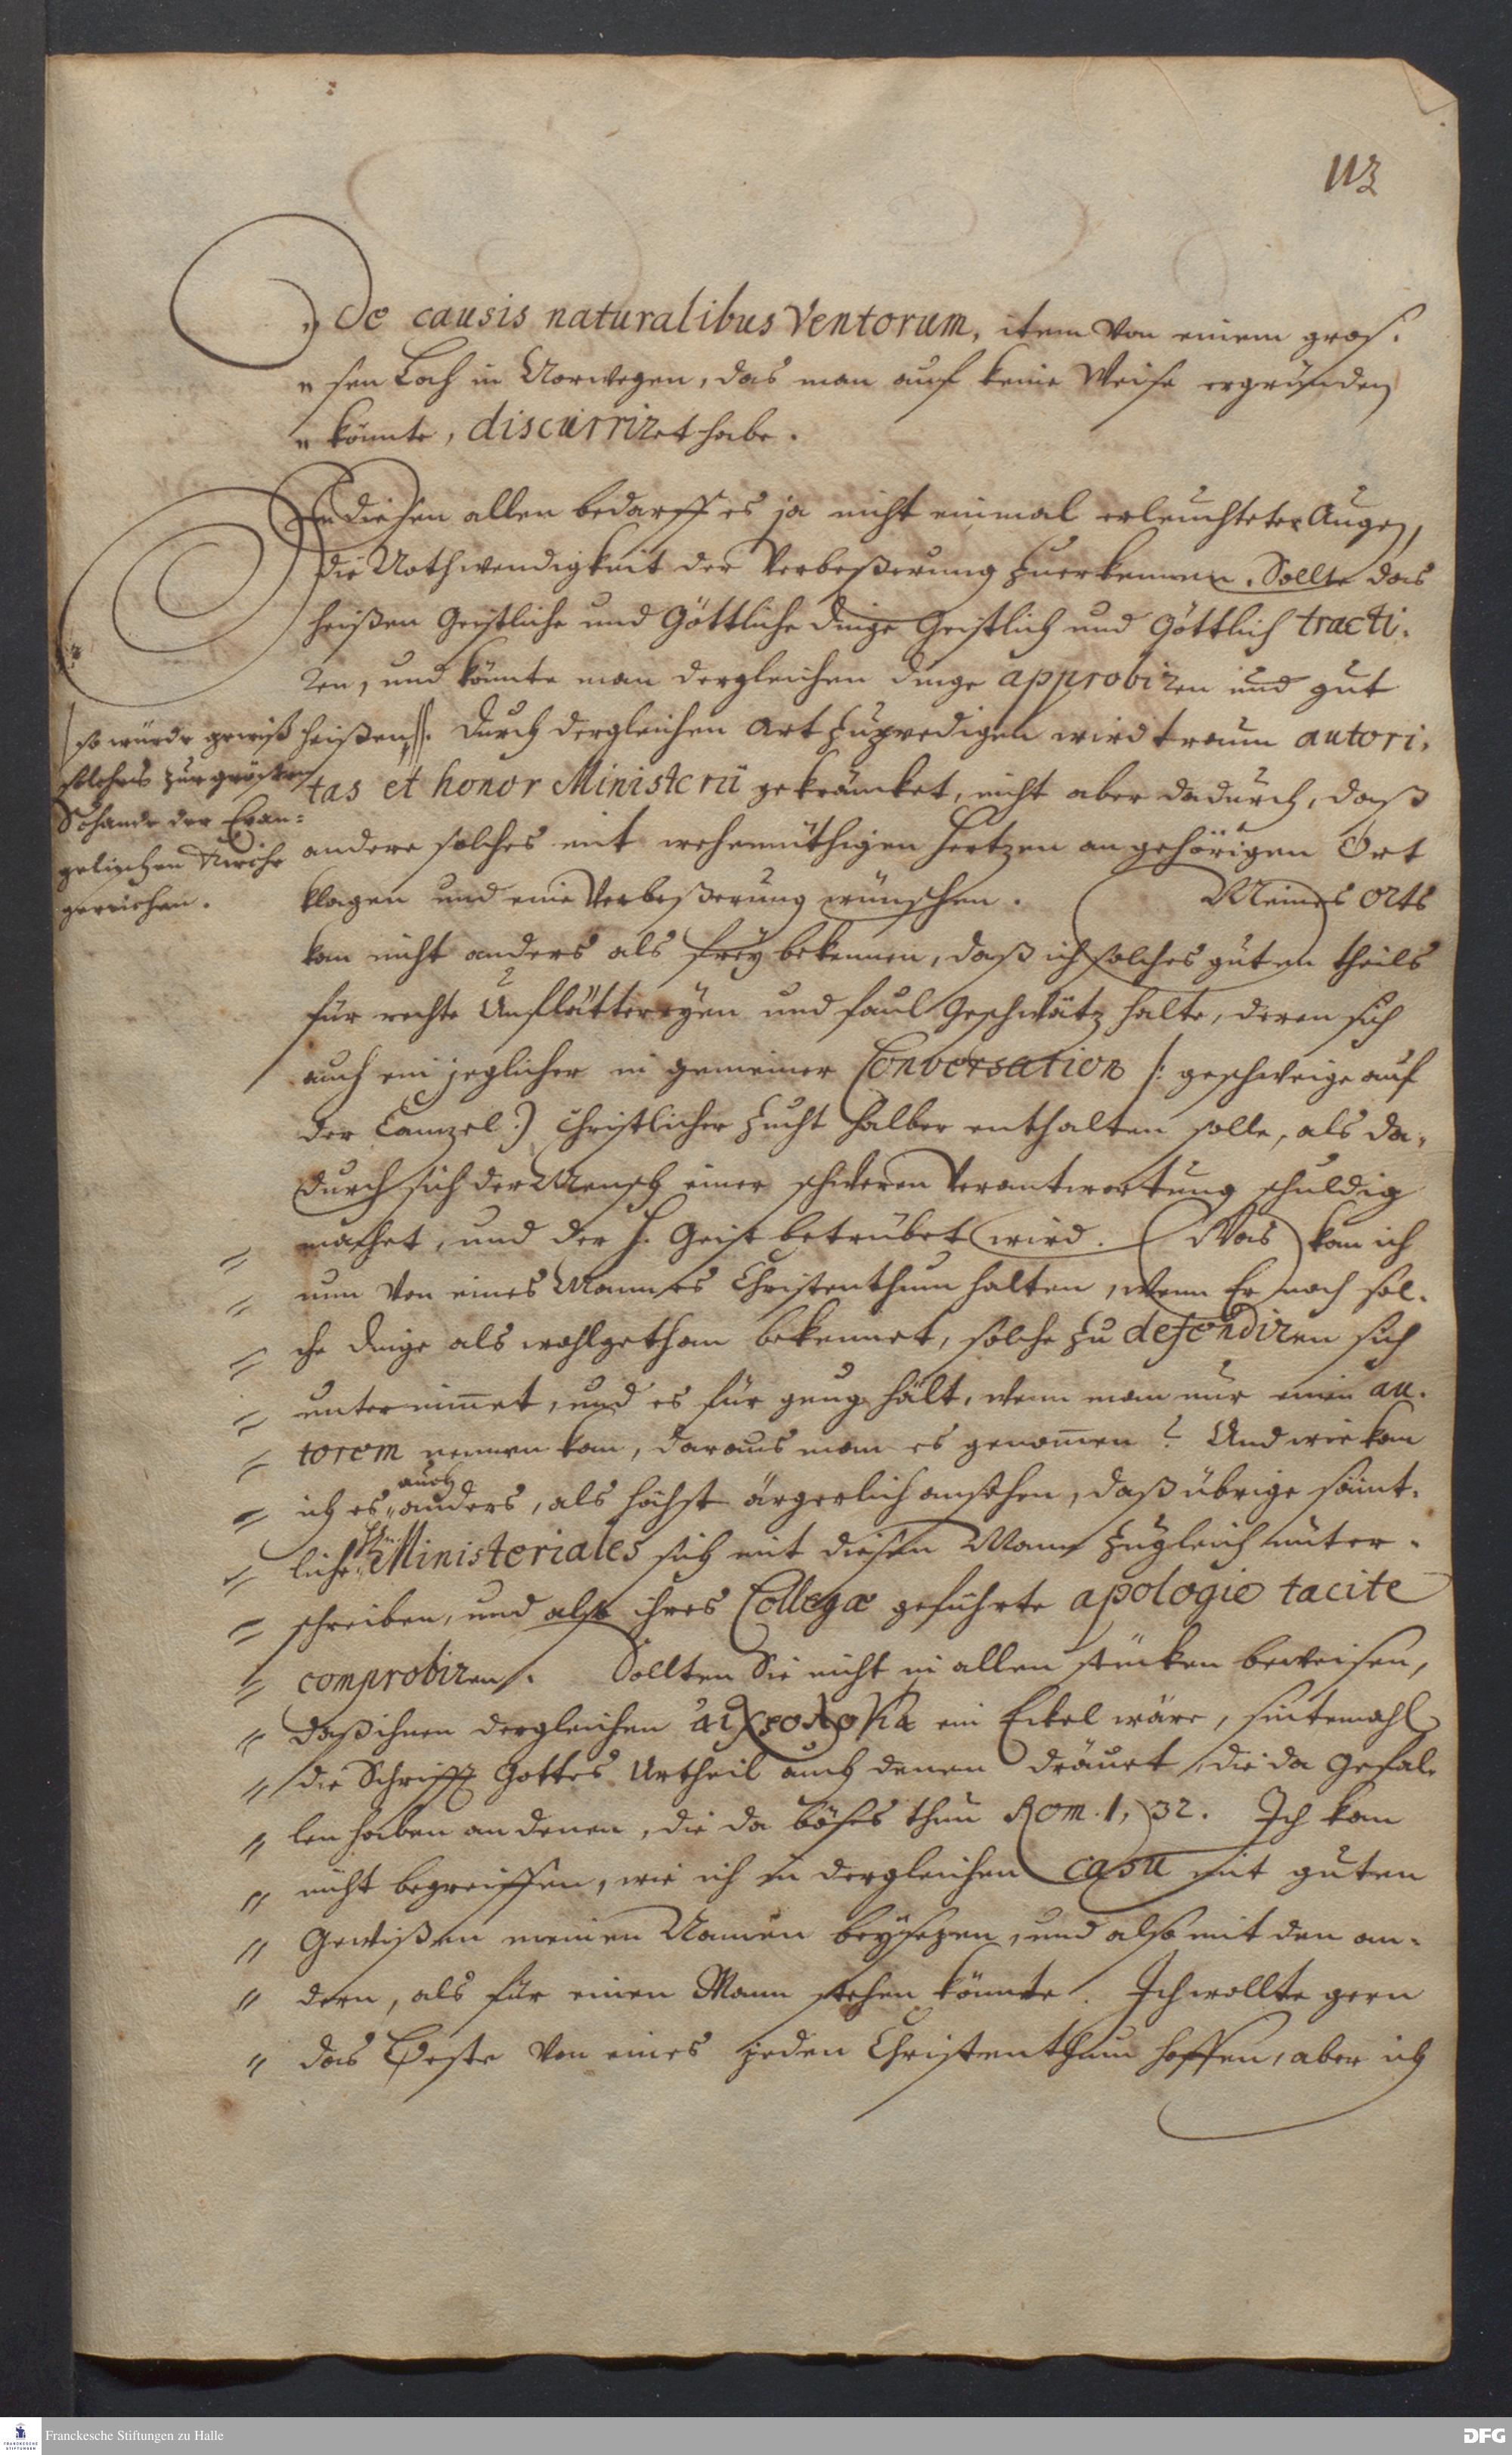 113
„ De causis naturalibus Ventorum, item von einem gros-
„ sen Loch in Norwegen, das man auf keine Weise ergründen
„ könnte, discurriret habe.
In diesen allen bedarff es ja nicht einmal erleuchteter Augen,
die Nothwendigkeit der Verbeßerung zuerkennen. Sollte das
heißen Geistliche und Göttliche dinge Geistlich und Göttlich tracti-
ren, und könnte man dergleichen dinge approbiren und gut
heißen,//. Durch dergleichen Art zupredigen wird traum autori-
/so würde gewiß
solches zur grösten
Schande der Evan-
gelischen Kirche
gereichen.
tas et honor Ministerii gekräncket, nicht aber dadurch, daß
andere solches mit wehemüthigen Hertzen an gehörigen Ort
klagen und eine Verbeßerung wünschen. Meines Orts
kan nicht anders als frey bekennen, daß ich solches guten theils
für rechte Unflättereyen und faul Geschwätz halte, deren sich
auch ein jeglicher in gemeiner Conversation /: geschweige auf
der Canzel :) Christlicher Zucht halber enthalten solle, als da-
durch sich der Mensch einer schweren Verantwortung schuldig
machet, und der H. Geist betrübet wird. Was kan ich
„ nun von eines Mannes Christenthum halten, wenn Er noch sol-
„ che dinge als wohlgethan bekennet, solche zu defendiren sich
„ unternim̅et, und es für gnug hält, wenn man nur einen au-
„ torem nennen kan, daraus man es genom̅en? Und wie kan
„ ich es auch anders, als höchst ärgerlich ansehen, daß übrige sämt-
„ liche Ministeriales sich mit diesem Mann zugleich unter-
„ schreiben, und also ihres Collegæ geführte apologie tacite
„ comprobiren. Sollten Sie nicht in allen stücken beweisen,
„ daß ihnen dergleichen αἰχρολογία ein Eckel wäre, sintemahl
„ die Schrifft Gottes Urtheil auch denen dräuet, die da Gefal-
„ len haben an denen, die da böses thun Rom. 1, 32. Ich kan
„ nicht begreiffen, wie ich in dergleichen casu mit guten
„ Gewißen meinen Namen beysezen, und also mit den an-
„ dern, als für einen Mann stehen könnte. Ich wollte gern
„ das Beste von eines jeden Christenthum hoffen, aber ich
Franckesche Stiftungen zu Halle
DFG